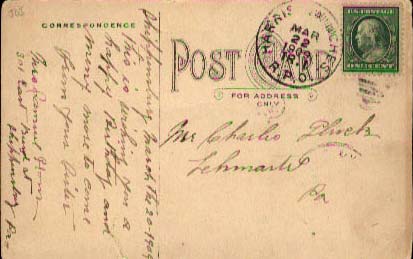 CORRESPONDENCE
Shippensburg March the 20-1909
this wishing you a
happy Birthday and
many more to come
from your Sister
Mrs Samuel
301 East
Shippensburg Pa
POST CARD
FOR ADDRESS
ONLY
MAR
22
1909
R.P.O.
ONE CENT
Mr Charlie
Lehmaster
Pa